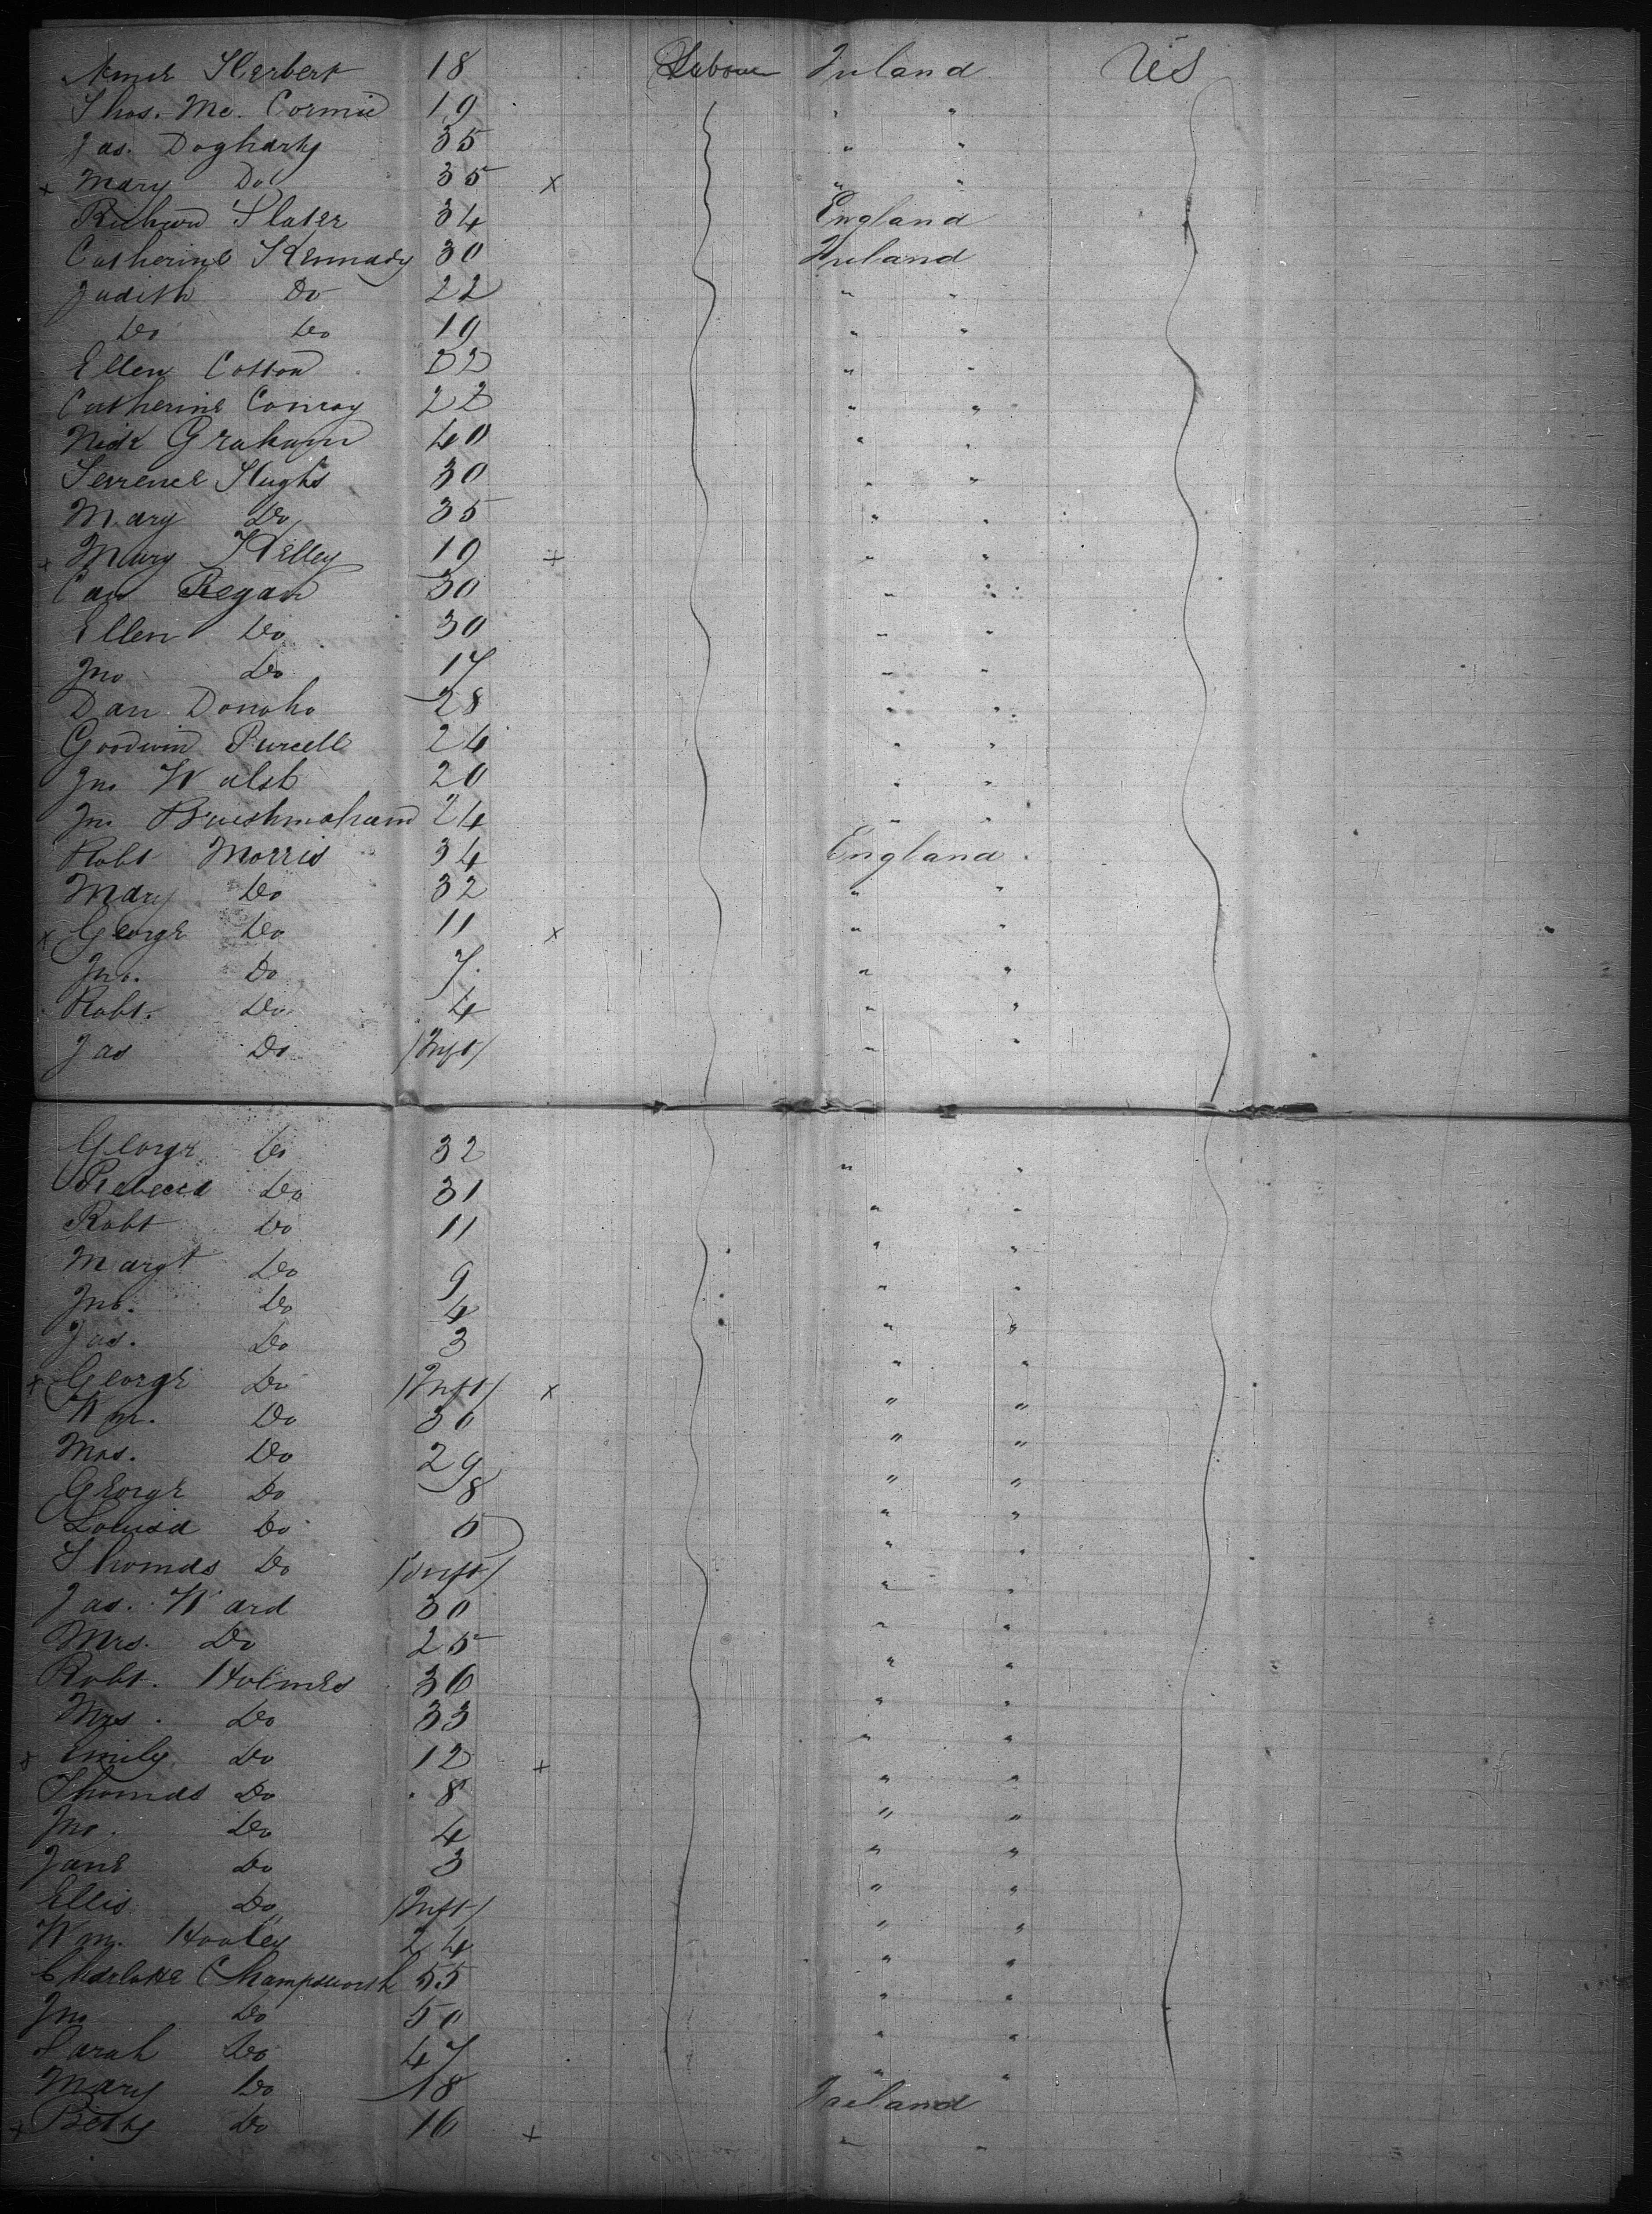 Herbert 18 Labour Ireland US
Thos. Mc. Cormic 19 " "
Jas. Dogharty 35 " "
x Mary Do 35 x " "
Richard Slater 34 England
Catherine Kennady 30 Ireland
Judith Do 22 " "
Do Do 19 " "
Ellen Cotton 22 " "
Catherine Conroy 22 " "
Nick Graham 40 " "
Terrence Hughs 30 " "
Mary Do 35 " "
x Mary Kelley 19 x " "
Regan 30 " "
Ellen Do 30 " "
Jno Do 17 " "
Dan Donoho 28 " "
Goodwin Purcell 24 " "
Jno Walsh 20 " "
Jno 24 " "
Robt Morris 34 England
Mary Do 32 " "
x George Do 11 x " "
Jno. Do 7 " "
Robt. Do 4 " "
Jas Do /Inft/ " "
George Do 32 " "
Rebecca Do 31 " "
Robt Do 11 " "
Margt Do 9 " "
Jno. Do 4 " "
Jas. Do 3 " "
x George Do /Inft/ x " "
Wm. Do 30 " "
Mrs. Do 29 " "
George Do 8 " "
Louisa Do 5 " "
Thomas Do /Inft/ " "
Jas. Ward 30 " "
Mrs. Do 25 " "
Robt. Holmes 36 " "
Mrs. Do 33 " "
x Emily Do 12 x " "
Thomas Do 8 " "
Jno. Do 4 " "
Jane Do 3 " "
Ellis Do /Inft/ " "
Wm. Hooley 24 " "
Champsworth 55 " "
Jno Do 50 " "
Sarah Do 47 " "
Mary Do 18 Ireland
x Betty Do 16 x " "